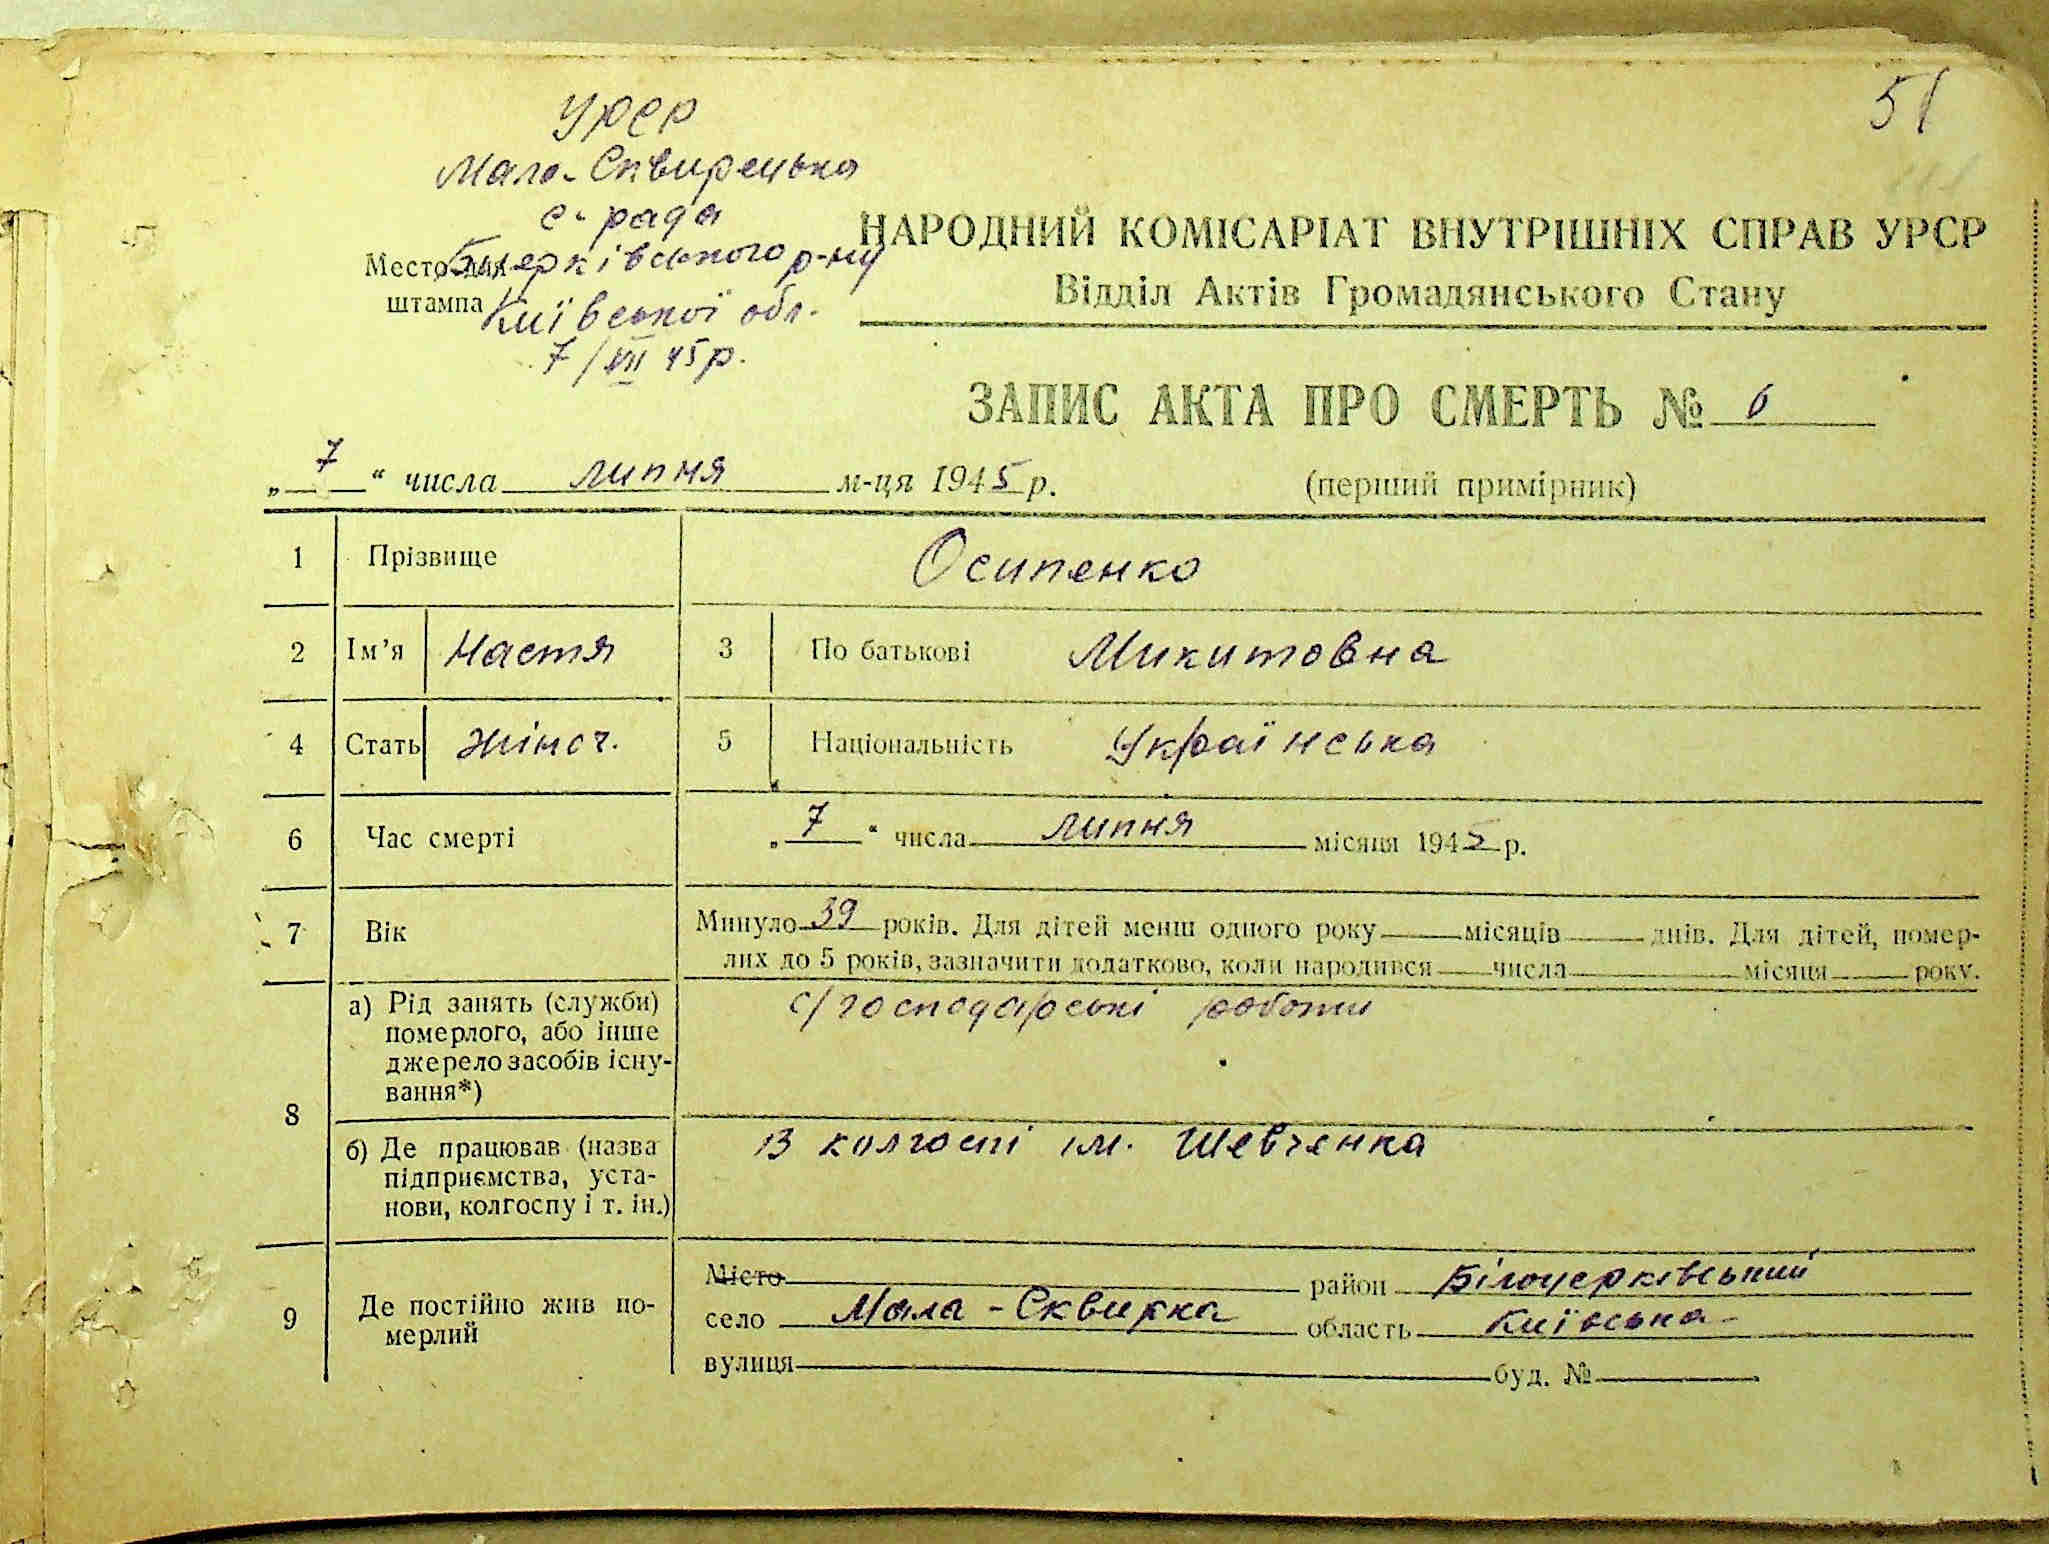 51
УРСР
Мало-Сквирецька
с-рада
Б-церківського р-ну
Київської обл.
7/VII 45р.
Место для
штампа
НАРОДНИЙ КОМІСАРІАТ ВНУТРІШНІХ СПРАВ УРСР
Відділ Актів Громадянського Стану
ЗАПИС АКТА ПРО СМЕРТЬ № 6
„ 7 “ числа липня м-ця 1945 р. (перший примірник)
1 Прізвище Осипенко
2 Ім’я Настя 3 По батькові Микитовна
4 Стать жіноч. 5 Національність Українська
6 Час смерті „ 7 “ числа липня місяця 1945 р.
7 Вік Минуло 39 років. Для дітей менш одного року місяців днів. Для дітей, помер-
лих до 5 років, зазначити додатково, коли народився числа місяця року.
8 а) Рід занять (служби) с/господарські роботи
померлого, або інше
джерело засобів існу-
вання*)
б) Де працював (назва В колгоспі ім. Шевченка
підприємства, уста-
нови, колгоспу і т. ін.)
9 Де постійно жив по-
мерлий
Місто район Білоцерківський
село Мала-Сквирка область Київська
вулиця буд. №